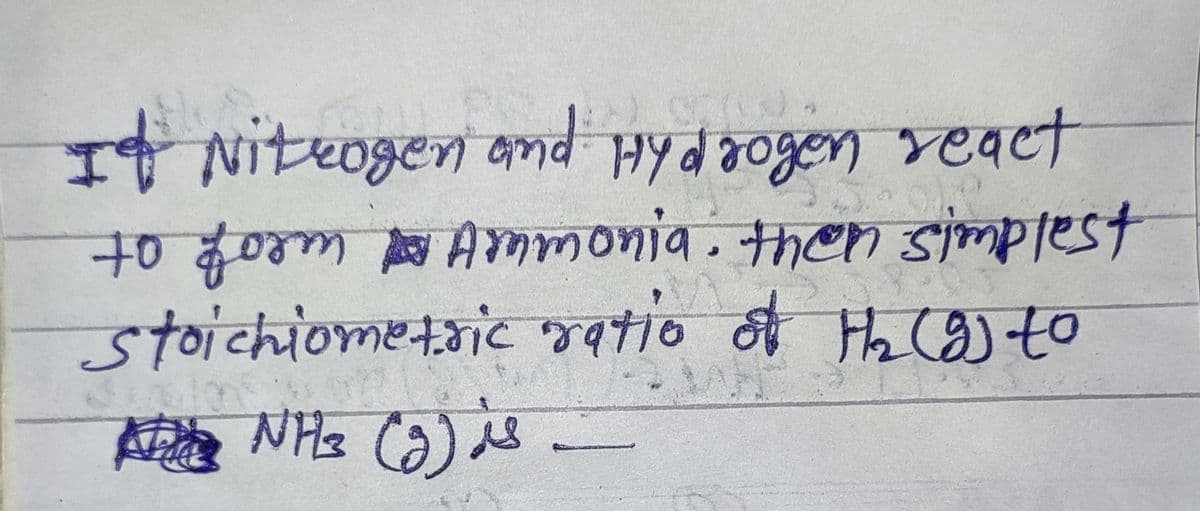 If Nitrogen and Hydrogen react
to form Ammonia. then simplest
stoichiometric ratio of H₂(g) to
NH₃ (g) is —